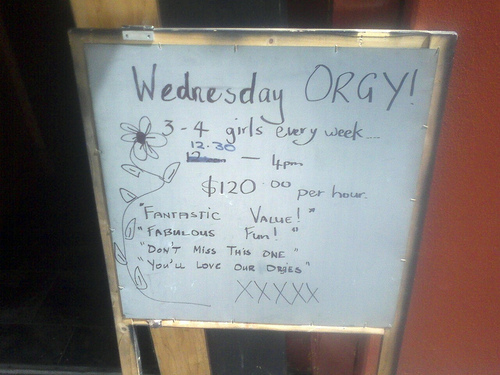 Wednesday ORGY!
3-4 girls every week....
12.30
12 — 4pm
$120.00 per hour.
"FANTASTIC VALUE!"
"FABULOUS FUN!"
"DON'T MISS THIS ONE"
"YOU'LL LOVE OUR ORGIES"
XXXXX